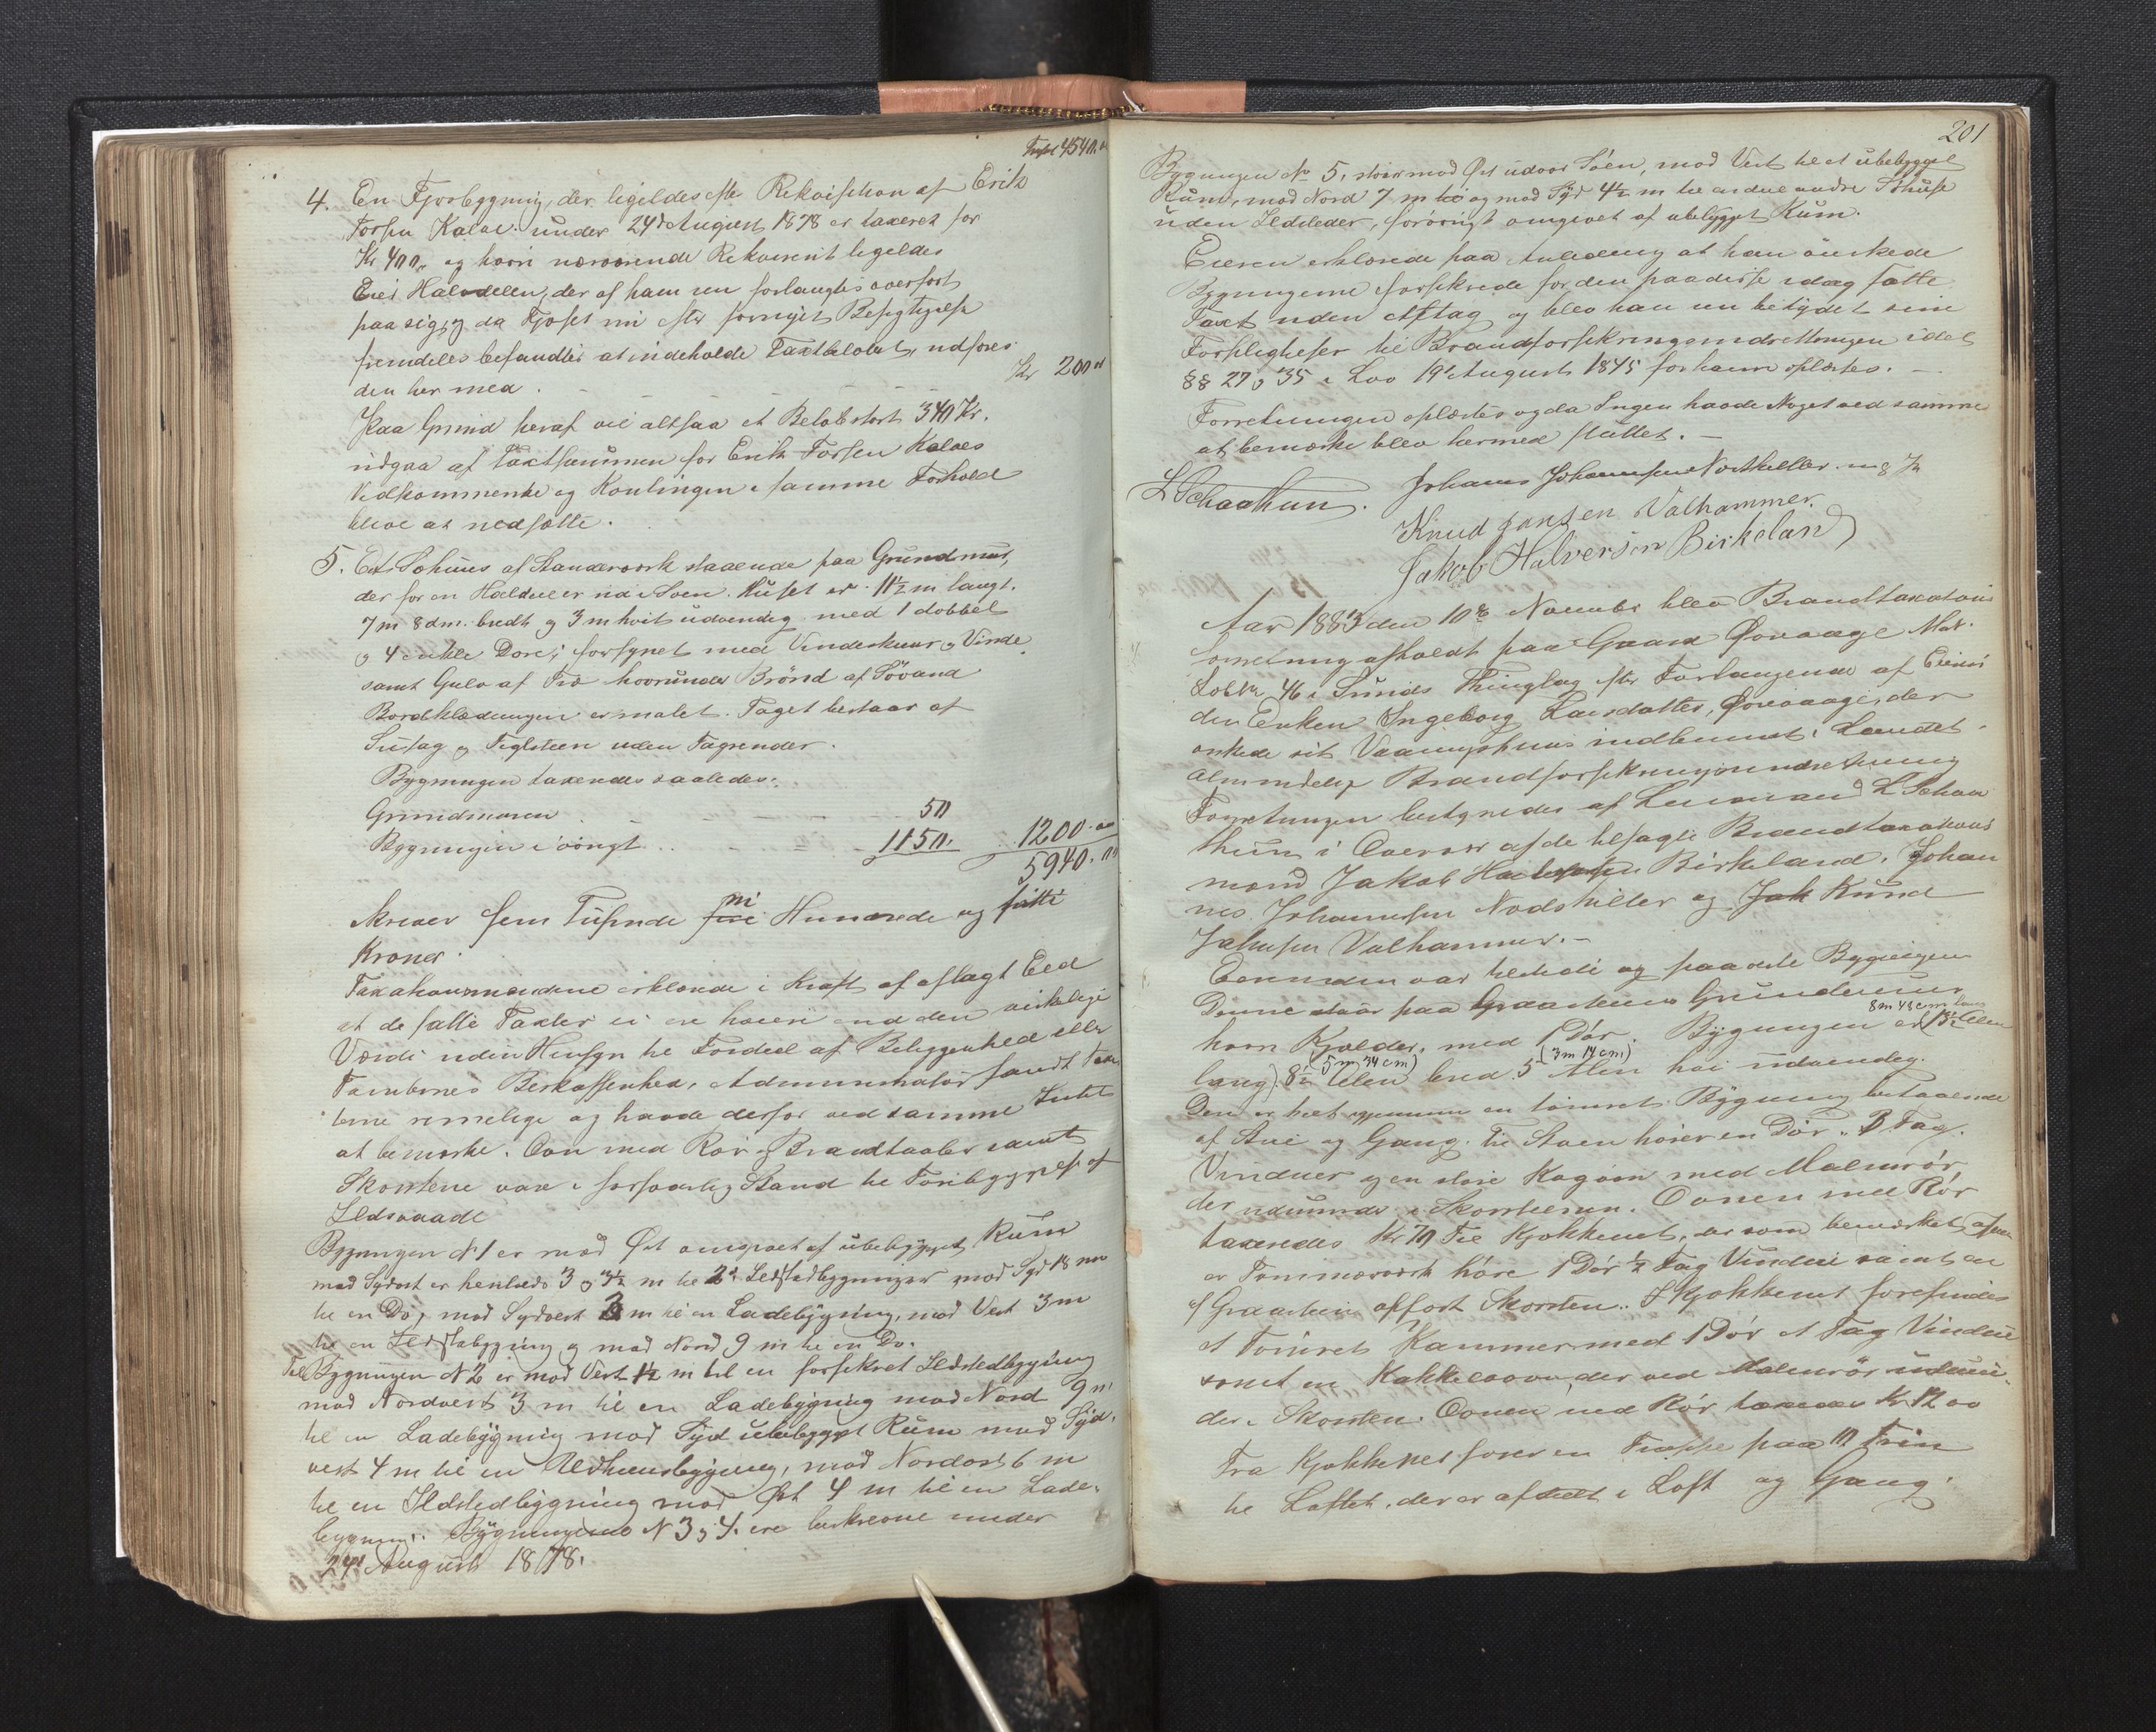 Trspt 4540.00
4. En Fjøsbygning, der ligeledes efter Rekvisition af Erik
Torsen Kalve under 24de August 1878 er taxeret for
Kr 400,00 og hvori nærværende Rekvirent ligeledes
Eier Halvdelen, der af ham nu forlangtes overført
paa sig, og da Fjøset nu efter fornyet Besigtigelse
fremdeles befandtes at indeholde Taxtbeløbet, udføres
den her med Kr 200 00
Paa Grund heraf vil altsaa et Beløb stort 340 Kr.
udgaa af Taxtsummen for Erik Torsen Kalves
Vedkommende og Kontingen i samme Forhold
blive at nedsætte.
5. Et Søhuus af Standerværk staaende paa Grundmur,
der for en Halvdeel er ud i Søen. Huset er 11½ m langt.
7 m 8 dm. bredt og 3 m høit udvendig med 1 dobbel
og 4 enkle Døre; forsynet med Vindeskuur og Vinde
samt Gulv af Træ hvorunder Brønd af Søvand
Bordklædningen er malet. Taget bestaar af
Sutag og Teglsteen uden Tagrender.
Bygningen taxeredes saaledes:
Grundmuren 50
Bygningen i øvrigt 1150. 1200.00
5940.00
skriver fem Tusinde ni Hundrede og førti
Kroner.
Taxationsmændene erklærede i Kraft af aflagt Eed
at de satte Taxter ei ere høiere end den virkelige
Værdi uden Hensyn til Fordeel af Beliggenhed eller
Tomternes Beskaffenhed, Administrator fandt Tax
terne rimelige og havde derfor ved samme Intet
at bemærke. Ovn med Rør og Brandtavler samt
Skorstene vare i forsvarlig Stand til Forebyggelse af
Ildsvaade
Bygningen No 1 er mod Øst omgivet af ubebygget Rum
mod Sydost er henholds 3 og 3½ m til 2de Ildstedbygninger mod Syd 18 m
til en Do, mod Sydvest 3 m til en Ladebygning, mod Vest 3 m
til en Ildstedbygning og mod Nord 9 m til en Do.
Til Bygningen N 2 er mod Vest 1½ m til en forsikret Ildstedbygning
mod Nordvest 3 m til en Ladebygning mod Nord 9 m
til en Ladebygning mod Syd ubebygget Rum mod Syd
vest 4 m til en Udhuusbygning, mod Nordost 6 m
til en Ildstedbygning mod Øst 4 m til en Lade-
bygning. Bygningerne N 3 og 4. ere beskrevne under
24de August 1878.
201
Bygningen No 5, støder mod Øst udover Søen, mod Vest til et ubebygget
Rum, mod Nord 7 m til og mod Syd 4½ m til endeel andre Søhuse
uden Ildsteder, forøvrigt omgivet af ubebygget Rum.
Eieren erklærede paa Anledning at han ønskede
Bygningerne forsikrede for den paa disse idag satte
Taxt uden Aftag og blev han nu betydet sine
Forpligtelser til Brandforsikringsindretningen idet
§§ 27 og 35 i Lov 19de August 1845 for ham oplæstes. -
Forretningen oplæstes og da Ingen havde Noget ved samme
at bemærke blev hermed sluttet. -
L Schaathun. Johannes Johannessen Nordhiller m. p. P.
Knud Jansen Valhammer.
Jakob Halversen Birkeland
Aar 1883 den 10de November blev Brandtaxations
forretning afholdt paa Gaard Øvreaage Mat.
Løb No 46 i Sunds Thinglag efter Forlangende af Eiersi
den Enken Ingeborg Larsdatter, Øvreaage, der
ønskede sit Vaaningshuus indlemmet i Landets
almindelige Brandforsikringsindretning
Forretningen bestyredes af Lensmand L Schaa
thun i Overvær af de tilsagte Brandtaxations
mænd Jakob Halversen Birkeland, Johan
nes Johannessen Nordhiller og Jak Knud
Jansen Valhammer. -
Eiersiden var tilstede og paaviste Bygningen
Denne staar paa Graasteens Grundmuur
8 m 48 cm lang
hvori Kjælder, med 1 Dør. Bygningen er 13½ Alen
(5 m 34 cm) (3 m 14 cm)
lang, 8½ Alen bred 5 Alen høi udvendig.
Den er helt igjennem en tømret Bygning bestaaende
af Stue og Gang. Til Stuen hører en Dør, 3 Fag
Vinduer og en stor Kogovn med Malmrør,
der udmunde i Skorstenen. Ovnen med Rør
taxeredes Kr 70 Til Kjøkkenet, der som bemærket
er Tømmerværk høre 1 Dør ½ Fag Vindue samt en
af Graasteen opført Skorsten. I Kjøkkenet forefindes
et Tømret Kammer med 1 Dør et Fag Vindue
samt en Kakkelovn, der ved Malmrør udmun
der i Skorsten. Ovnen med Rør taxeres Kr 12 00
Fra Kjøkkenet fører en Trappe paa 10 Trin
til Loftet, der er afdeelt i Loft og Gang.